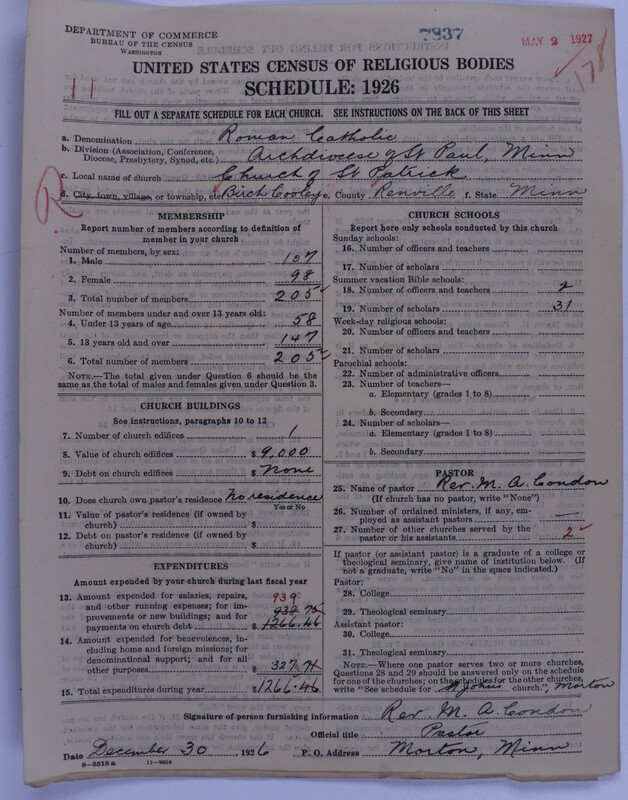 DEPARTMENT OF COMMERCE
BUREAU OF THE CENSUS
WASHINGTON
7937
MAY 2 1927
178
11
UNITED STATES CENSUS OF RELIGIOUS BODIES
SCHEDULE: 1926
FILL OUT A SEPARATE SCHEDULE FOR EACH CHURCH. SEE INSTRUCTIONS ON THE BACK OF THIS SHEET
a. Denomination Roman Catholic
b. Division (Association, Conference, Diocese, Presbytery, Synod, etc.) Archdiocese of St Paul, Minn
c. Local name of church Church of St Patrick
d. City, town, village, or township, etc Birch Cooley e. County Renville f. State Minn
R
MEMBERSHIP
Report number of members according to definition of
member in your church
Number of members, by sex:
1. Male 107
2. Female 98
3. Total number of members 205
Number of members under and over 13 years old:
4. Under 13 years of age 58
5. 13 years old and over 147
6. Total number of members 205
NOTE.—The total given under Question 6 should be
same as the total of males and females given under Question 3.
CHURCH BUILDINGS
See instructions, paragraphs 10 to 12
7. Number of church edifices 1
8. Value of church edifices $ 9,000
9. Debt on church edifices $ None
10. Does church own pastor's residence No residence
Yes or No
11. Value of pastor's residence (if owned by
church) $
12. Debt on pastor's residence (if owned by
church) $
EXPENDITURES
Amount expended by your church during last fiscal year
13. Amount expended for salaries, repairs, 939
and other running expenses; for im- 938 75
provements or new buildings; and for
payments on church debt $ 1266.46
14. Amount expended for benevolences, in-
cluding home and foreign missions; for
denominational support; and for all
other purposes $ 327.71
15. Total expenditures during year $ 1266.46
CHURCH SCHOOLS
Report here only schools conducted by this church
Sunday schools:
16. Number of officers and teachers
17. Number of scholars
Summer vacation Bible schools:
18. Number of officers and teachers 2
19. Number of scholars 31
Week-day religious schools:
20. Number of officers and teachers
21. Number of scholars
Parochial schools:
22. Number of administrative officers
23. Number of teachers—
a. Elementary (grades 1 to 8)
b. Secondary
24. Number of scholars—
a. Elementary (grades 1 to 8)
b. Secondary
PASTOR
25. Name of pastor Rev. M. A. Condon
(If church has no pastor, write "None")
26. Number of ordained ministers, if any, em-
ployed as assistant pastors —
27. Number of other churches served by the
pastor or his assistants 2
If pastor (or assistant pastor) is a graduate of a college or
theological seminary, give name of institution below. (If
not a graduate, write "No" in the space indicated.)
Pastor:
28. College
29. Theological seminary
Assistant pastor:
30. College
31. Theological seminary
NOTE.—Where one pastor serves two or more churches,
Questions 28 and 29 should be answered only on the schedule
for one of the churches; on the schedules for the other churches,
write "See schedule for St Johns church.", Morton
Signature of person furnishing information Rev. M. A. Condon
Official title Pastor
Date December 30, 1926 P. O. Address Morton, Minn
8—5518 a 11—9604